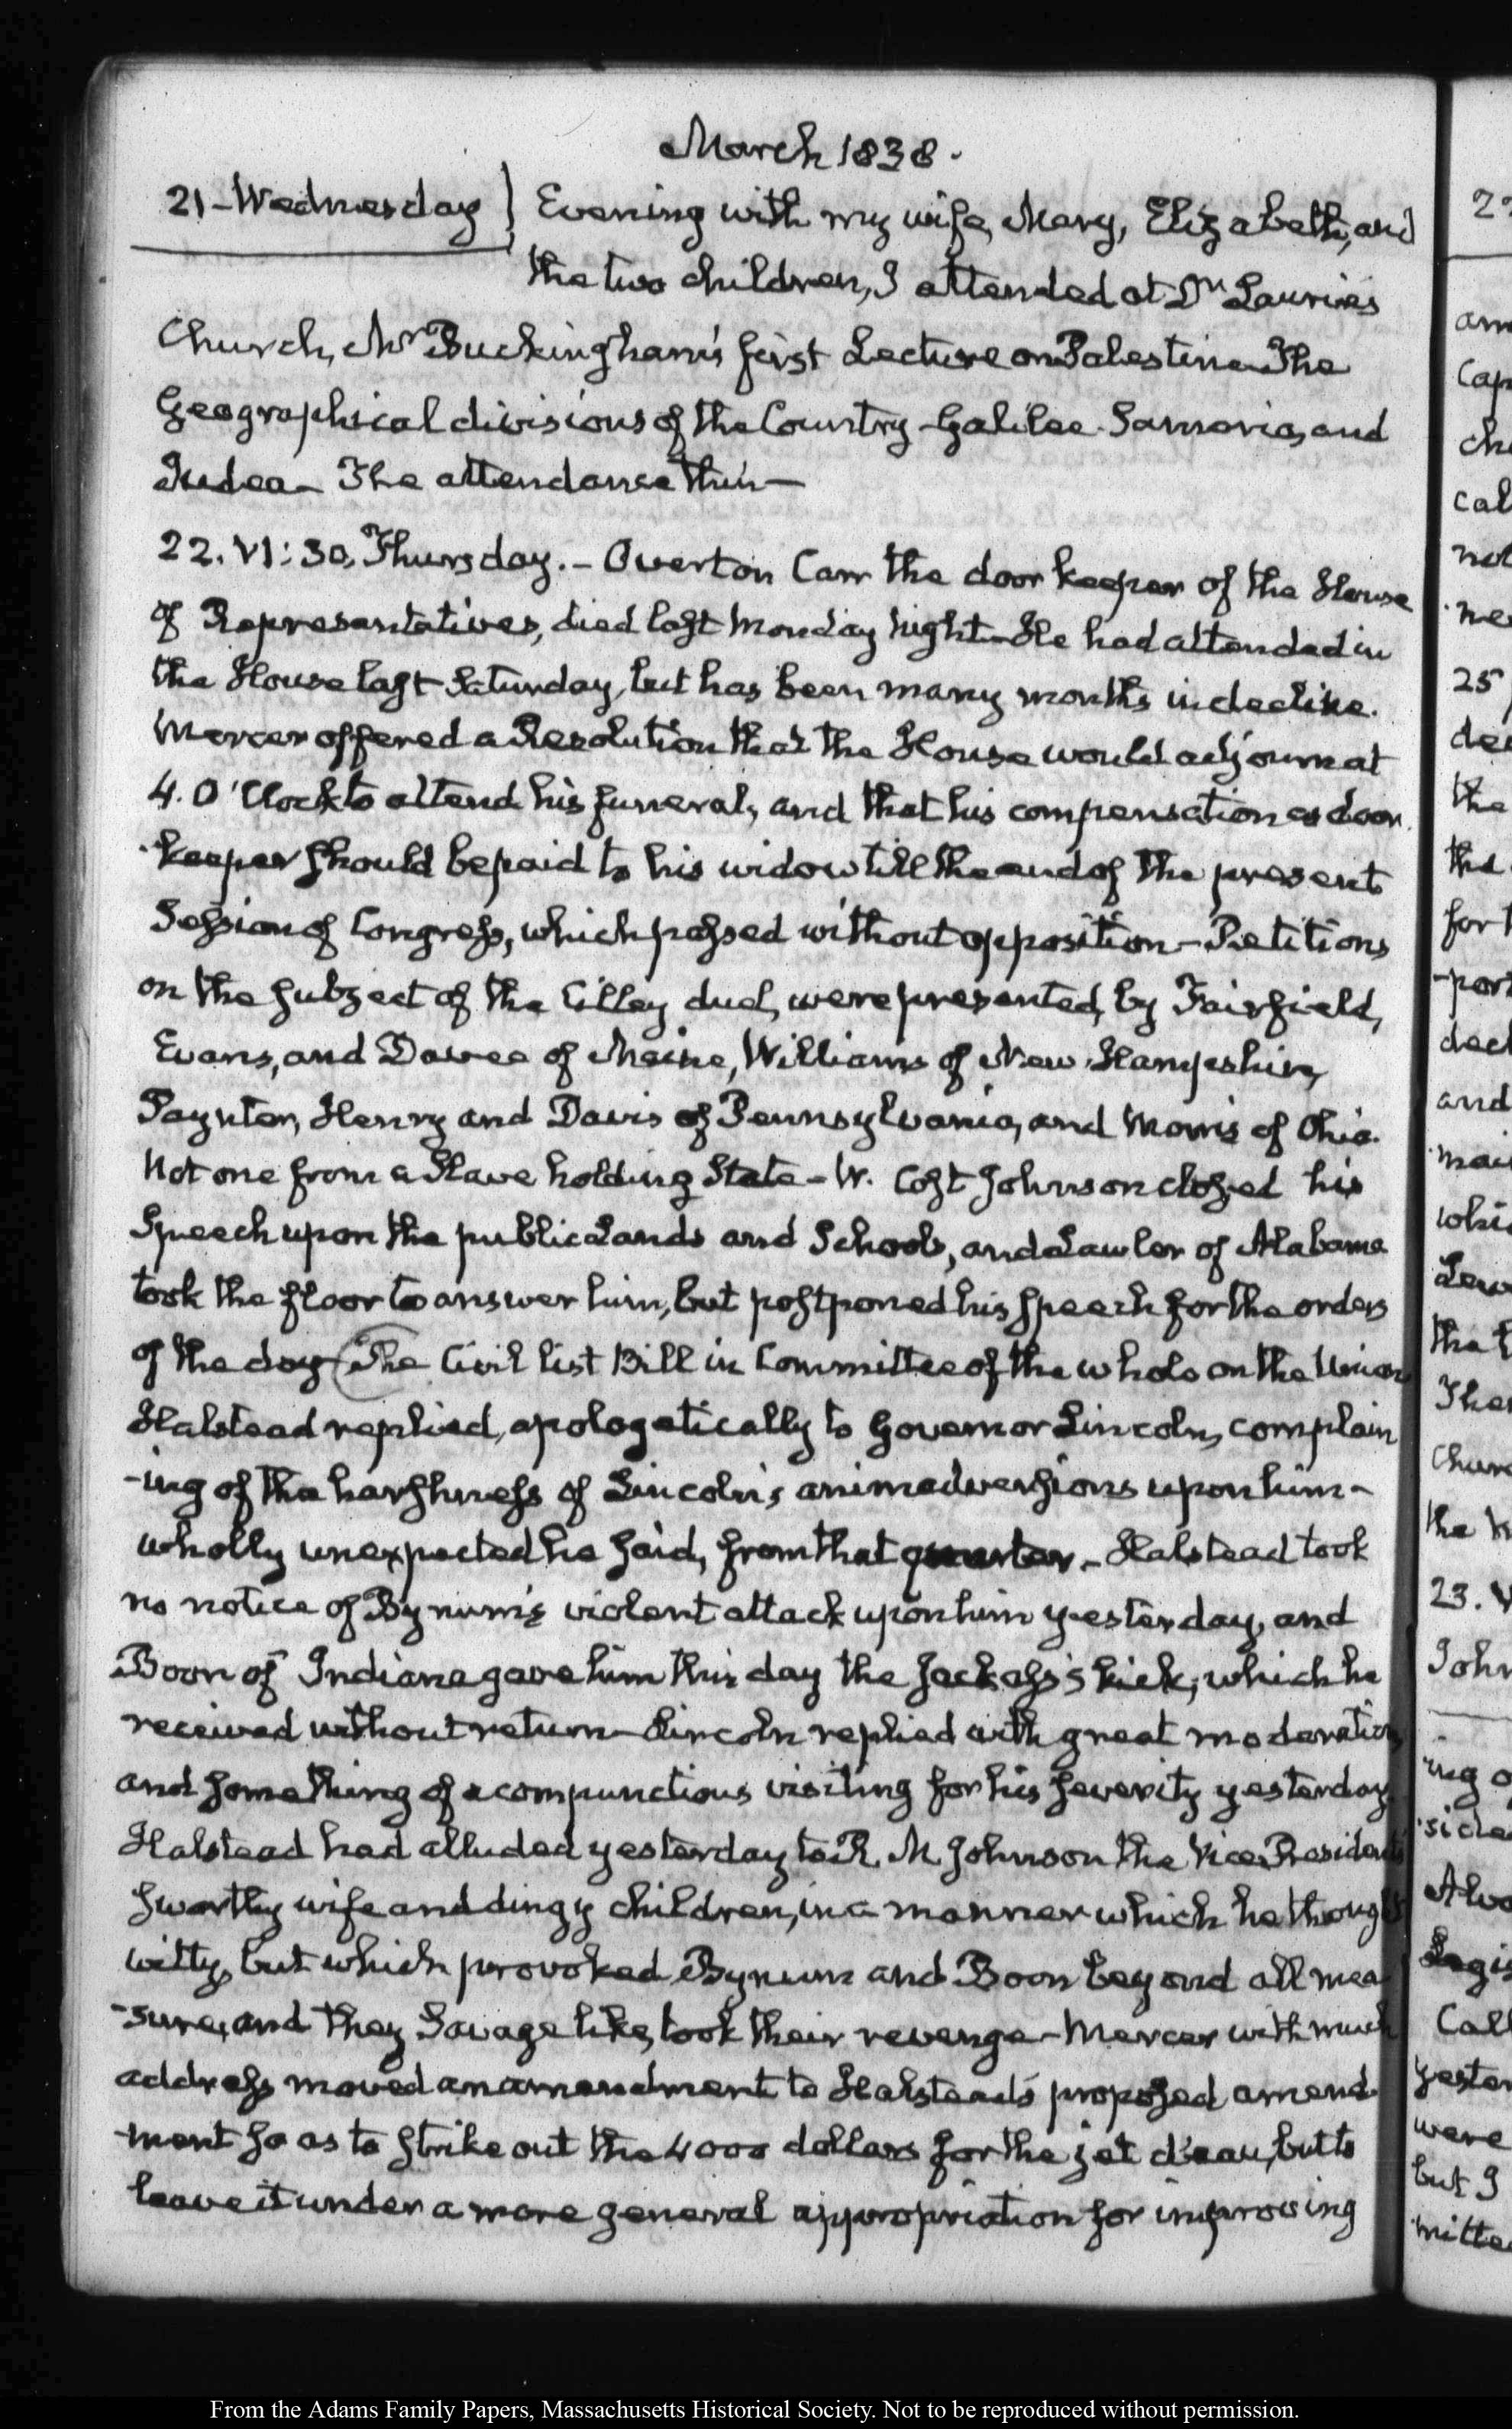 March 1838.
21-Wednesday} Evening with my wife, Mary, Elizabeth, and
the two children, I attended at Dr Lauries
Church, Mr Buckingham's first Lecture on Palestine. The
Geographical divisions of the Country - Galilee. Samaria, and
Judea - The attendance thin -
22. VI:30. Thursday. - Overton Carr the door keeper of the House
of Representatives, died last Monday night - He had attended in
the House last Saturday, but has been many months in decline.
Mercer offered a Resolution that the House would adjourn at
4. O'Clock to attend his funeral, and that his compensation as door
-keeper should be paid to his widow till the end of the present
Session of Congress, which passed without opposition - Petitions
on the subject of the Cilley duel, were presented, by Fairfield,
Evans, and Davee of Maine, Williams of New-Hampshire,
Paynter, Henry and Davis of Pennsylvania, and Morris of Ohio.
Not one from a Slave holding State - W. Cost Johnson closed his
Speech upon the public Lands and Schools, and Lawler of Alabama
took the floor to answer him, but postponed his speech for the orders
of the day (The Civil list Bill in Committee of the whole on the Union
Halstead replied, apologetically to Governor Lincoln, complain
-ing of the harshness of Lincoln's animadversions upon him -
wholly unexpected he said, from that quarter - Halstead took
no notice of Bynum's violent attack upon him yesterday, and
Boon of Indiana gave him this day the Jackass's kick, which he
received without return - Lincoln replied with great moderation
and something of a compunctious visiting for his severity yesterday
Halstead had alluded yesterday to R. M. Johnson the Vice President's
swarthy wife and dingy children, in a manner which he thought
witty, but which provoked Bynum and Boon beyond all mea
-sure, and they Savage like, took their revenge - Mercer with much
address moved an amendment to Halstead's proposed amend
-ment so as to strike out the 4000 dollars for the jet d'eau, but to
leave it under a more general appropriation for improving
From the Adams Family Papers, Massachusetts Historical Society. Not to be reproduced without permission.